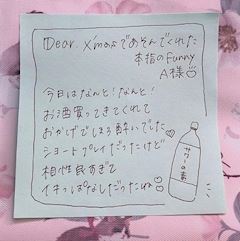 Dear. Xmasまであそんでくれた
本指のFunny
A様♡
今日はなんと!なんと!
お酒買ってきてくれて
おかげでしほろ酔いでした
ショートプレイだったけど
相性良すぎて
イキっぱなしだったね♡
サワーの素